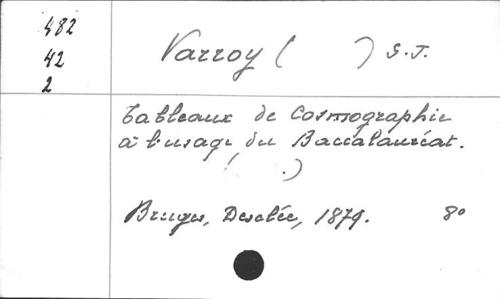 482
42
2
Varroy (          ) S.J.
Tableaux de Cosmographie
à l'usage du Baccalauréat.
(     .)
Bruges, Desclée, 1879.     8°